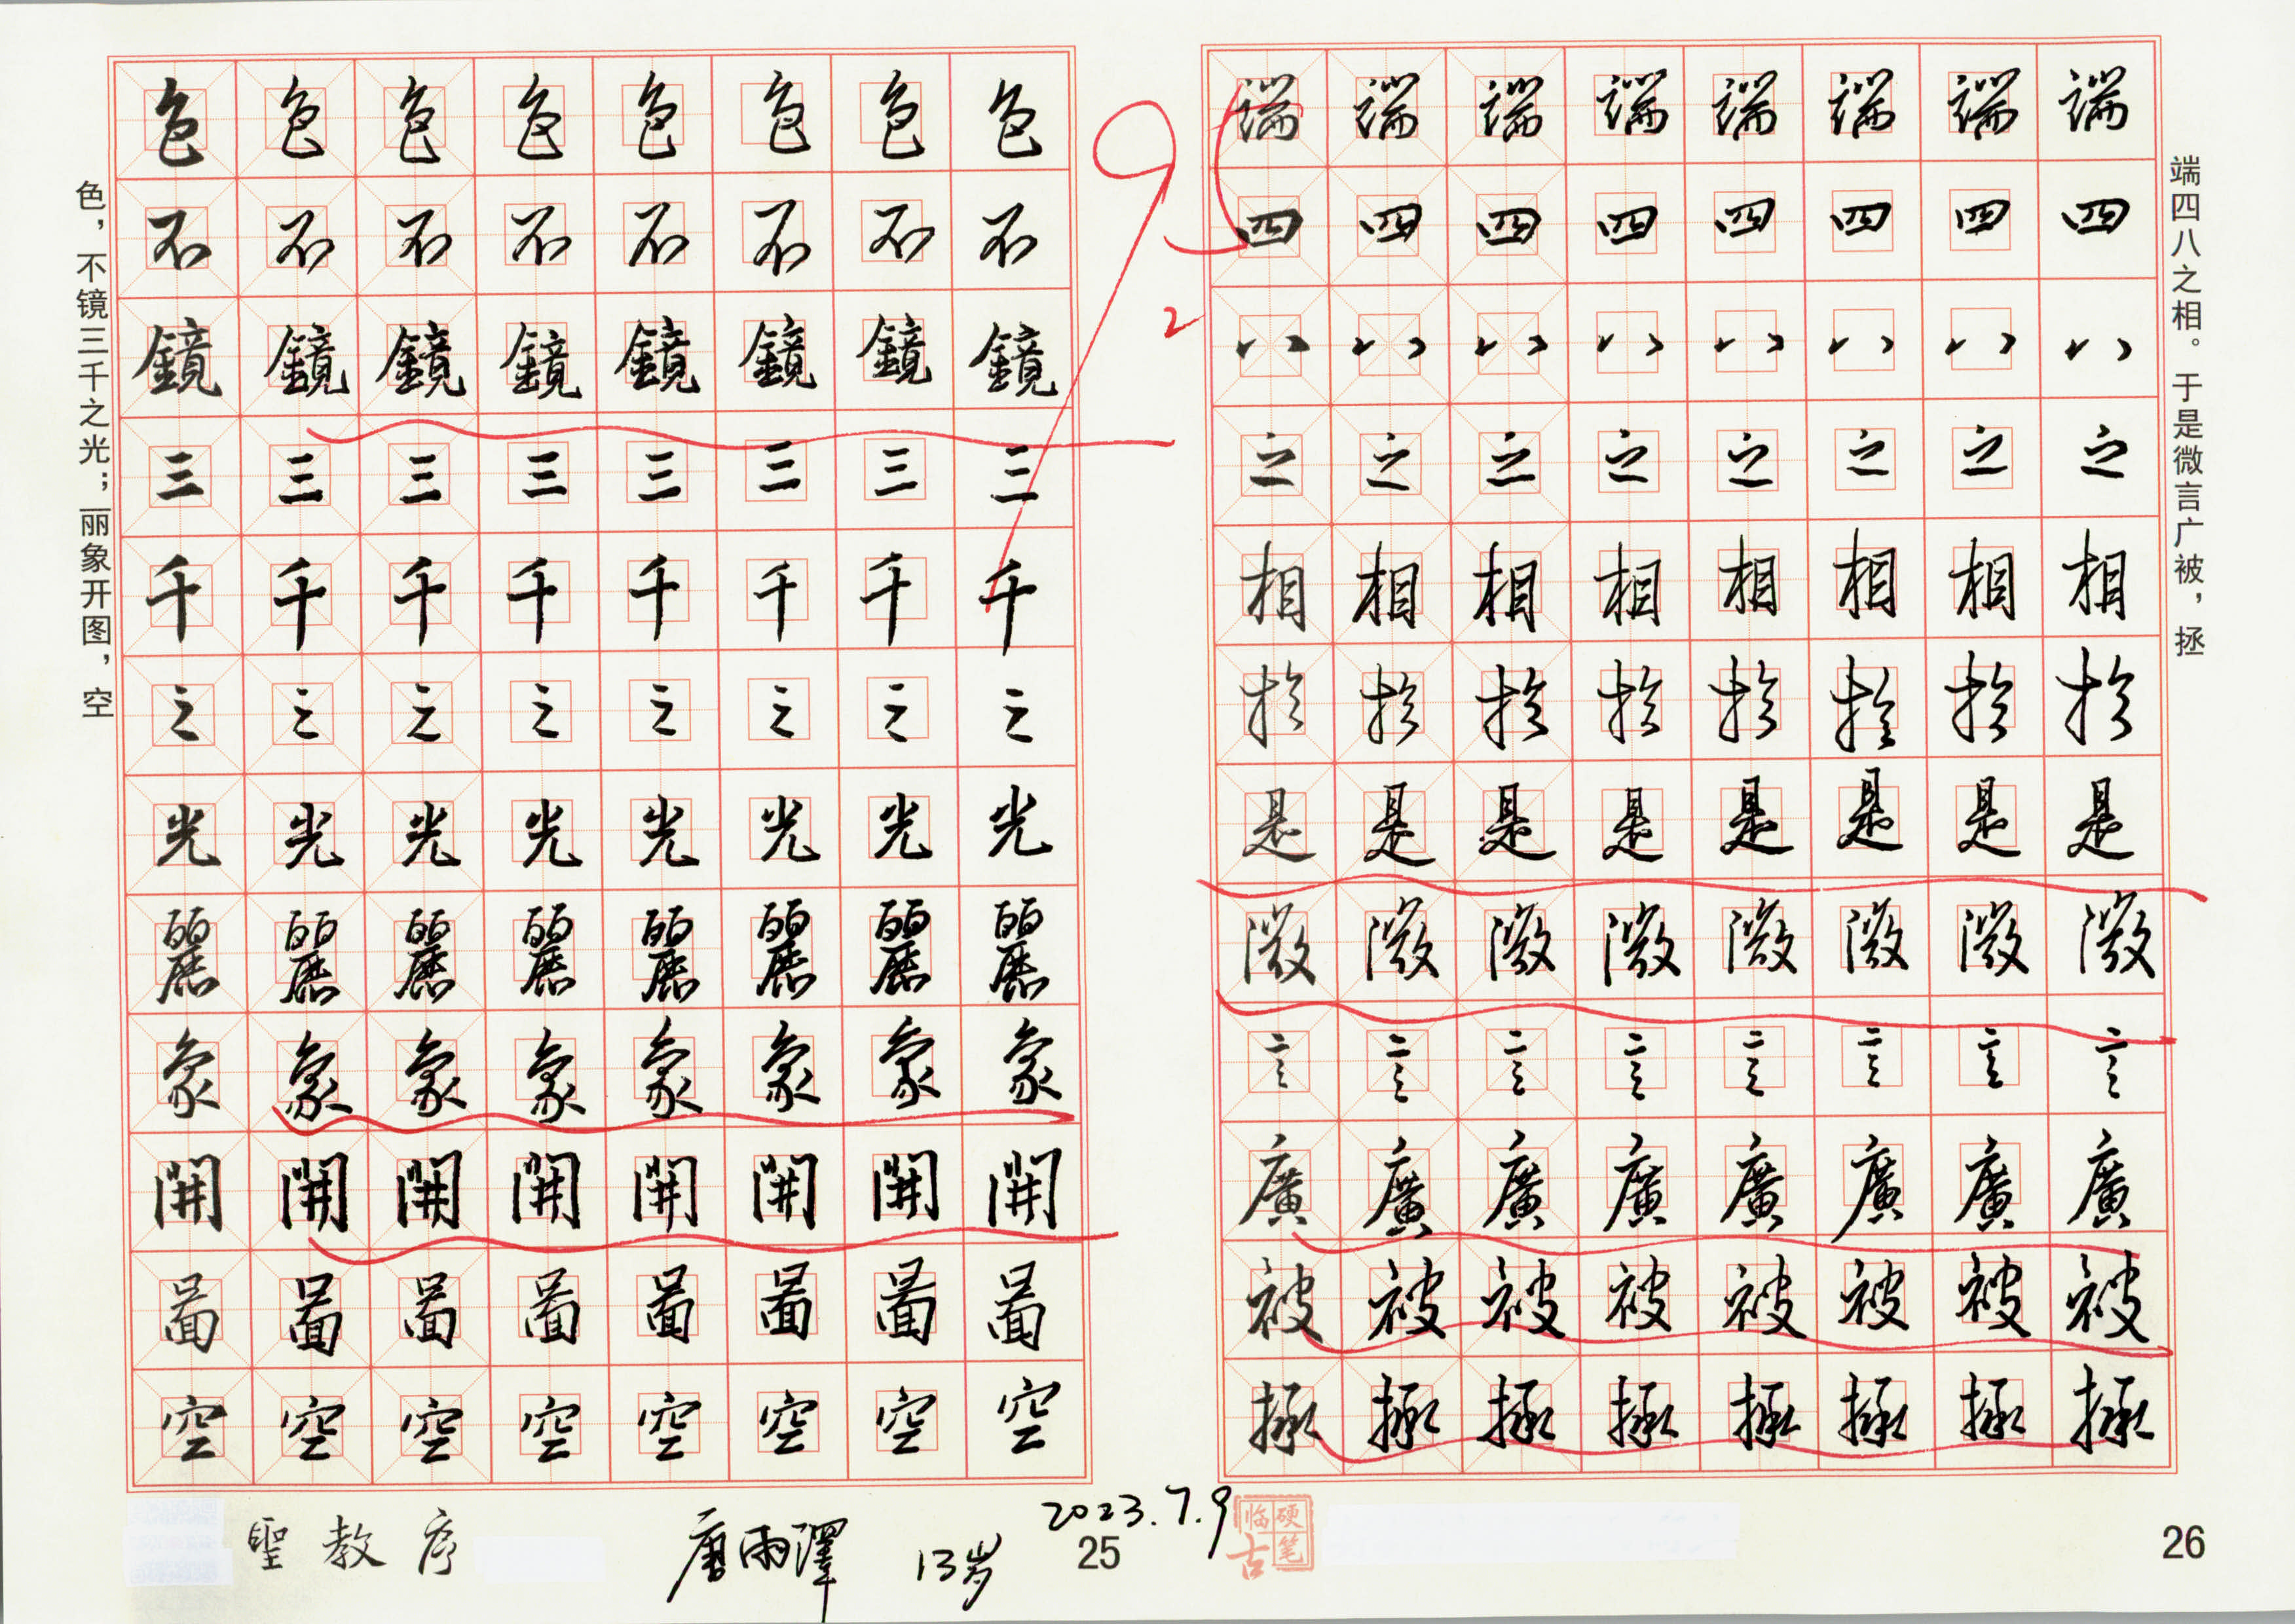 色，不镜三千之光；丽象开图，空
色色色色色色色色
不不不不不不不不
鏡鏡鏡鏡鏡鏡鏡鏡
三三三三三三三三
千千千千千千千千
之之之之之之之之
光光光光光光光光
麗麗麗麗麗麗麗麗
象象象象象象象象
開開開開開開開開
啚啚啚啚啚啚啚啚
空空空空空空空空
聖教序
唐雨澤 13岁
2023.7.9
25
95
2
端端端端端端端端
四四四四四四四四
八八八八八八八八
之之之之之之之之
相相相相相相相相
於於於於於於於於
是是是是是是是是
微微微微微微微微
言言言言言言言言
廣廣廣廣廣廣廣廣
被被被被被被被被
拯拯拯拯拯拯拯拯
端四八之相。于是微言广被，拯
硬笔临古
26